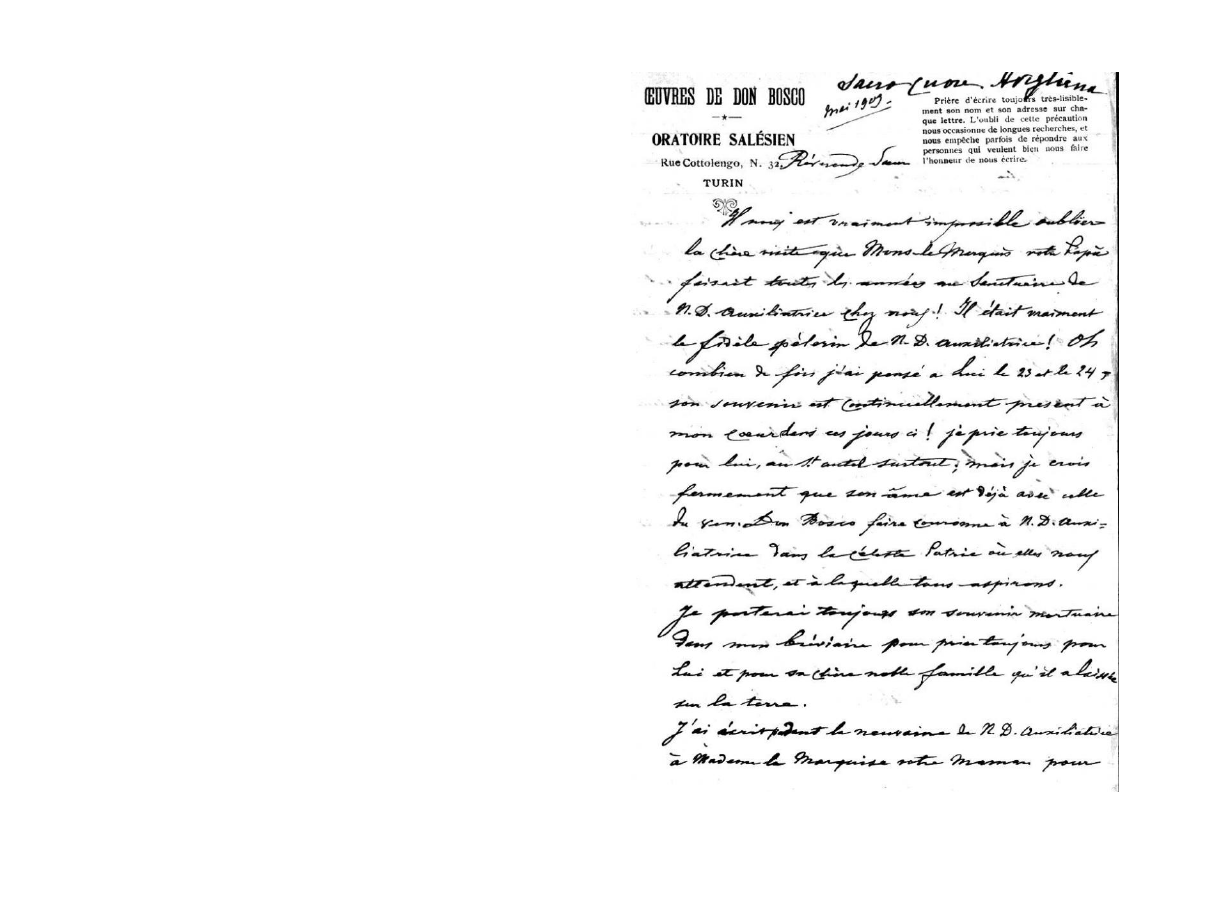 Sacro Cuore.
ŒUVRES DE DON BOSCO
mai 1909.
Prière d'écrire toujours très-lisible-
ment son nom et son adresse sur cha-
que lettre. L'oubli de cette précaution
nous occasionne de longues recherches, et
nous empêche parfois de répondre aux
personnes qui veulent bien nous faire
l'honneur de nous écrire.
ORATOIRE SALÉSIEN
Rue Cottolengo, N. 32,
TURIN
Révérende Sœur
Il m'est vraiment impossible oublier
la chère visite que Mons. le Marquis votre Papà
faisait toutes les années au Sanctuaire de
N. D. Auxiliatrice chez nous! Il était vraiment
le fidèle pèlerin de N. D. Auxiliatrice! Oh
combien de fois j'ai pensé a Lui le 23 et le 24
son souvenir est continuellement présent à
mon cœur dans ces jours ci! je prie toujours
pour lui, au St autel surtout; mais je crois
fermement que son âme est déjà avec celle
du ven. Don Bosco faire couronne à N. D. Auxi=
liatrice dans la céleste Patrie où elles nous
attendent, et à laquelle tous aspirons.
Je porterai toujours son souvenir mortuaire
dans mon bréviaire pour prier toujours pour
Lui et pour sa chère noble famille qu'il a laissée
sur la terre.
J'ai écrit pdent la neuvaine de N. D. Auxiliatrice
à Madame la Marquise votre Maman pour